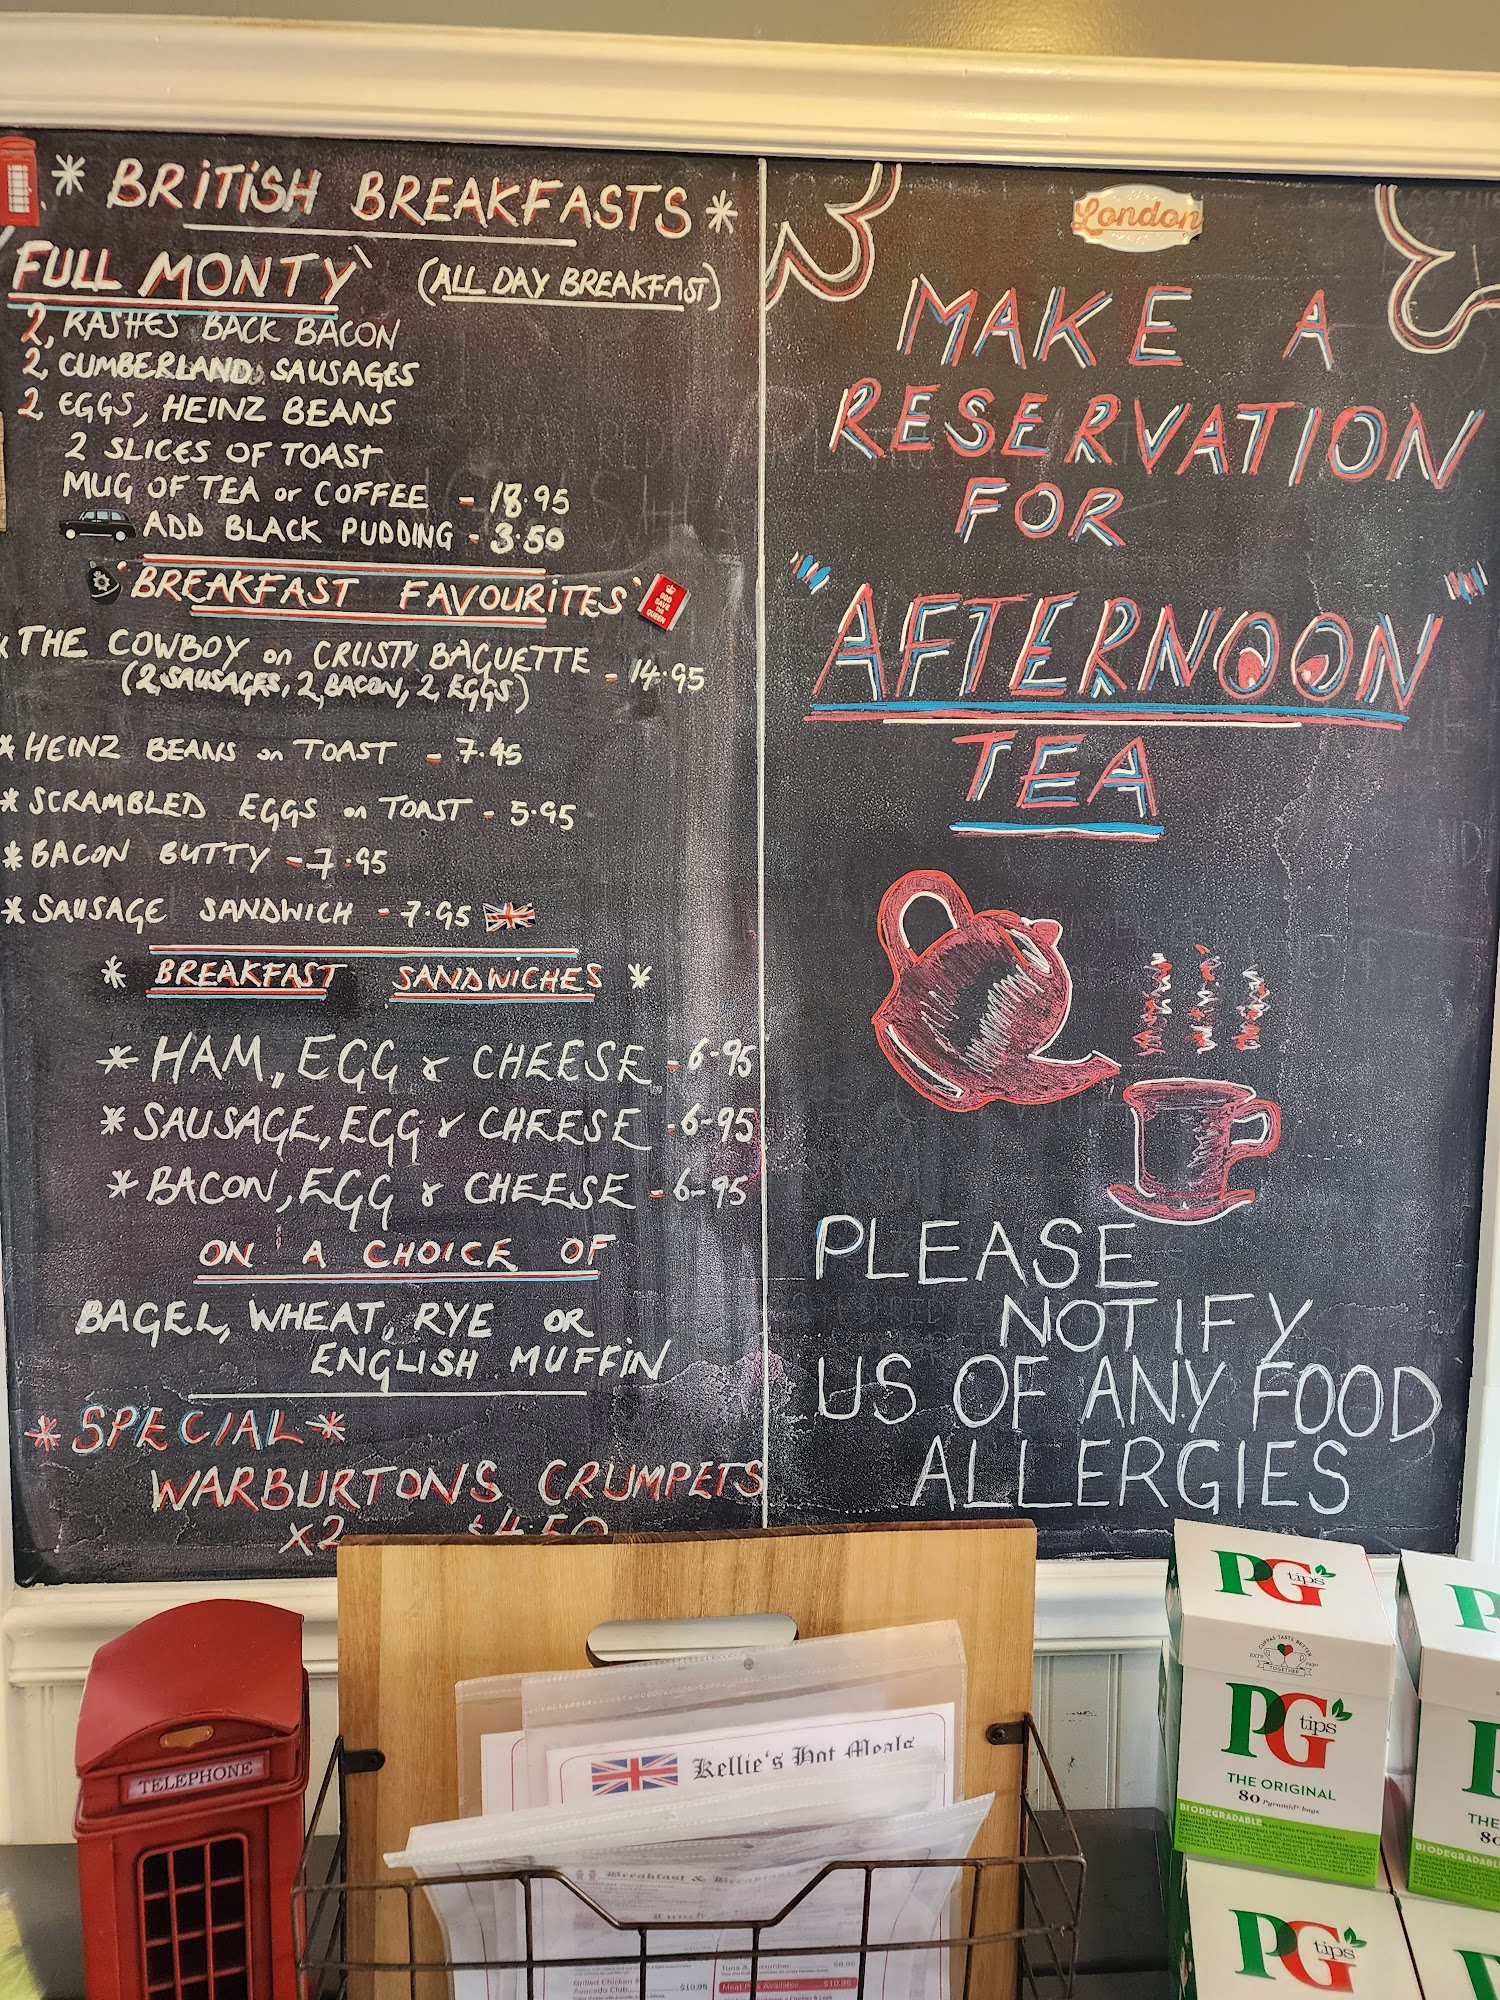 * BRITISH BREAKFASTS *
FULL MONTY` (ALL DAY BREAKFAST)
2, RASHES BACK BACON
2, CUMBERLAND SAUSAGES
2, EGGS, HEINZ BEANS
2 SLICES OF TOAST
MUG OF TEA or COFFEE - 18.95
ADD BLACK PUDDING - 3.50
'BREAKFAST FAVOURITES'
GOD
SAVE
THE
QUEEN
* THE COWBOY on CRUSTY BAGUETTE - 14.95
(2, SAUSAGES, 2, BACON, 2, EGGS)
* HEINZ BEANS on TOAST - 7.45
* SCRAMBLED EGGS on TOAST - 5.95
* BACON BUTTY - 7.95
* SAUSAGE SANDWICH - 7.95
* BREAKFAST SANDWICHES *
* HAM, EGG & CHEESE - 6-95
* SAUSAGE, EGG & CHEESE - 6-95
* BACON, EGG & CHEESE - 6-95
ON A CHOICE OF
BAGEL, WHEAT, RYE OR
ENGLISH MUFFIN
* SPECIAL *
WARBURTONS CRUMPETS
X2 $4.50
London
MAKE A
RESERVATION
FOR
"AFTERNOON"
TEA
PLEASE
NOTIFY
US OF ANY FOOD
ALLERGIES
TELEPHONE
Kellie's Hot Meals
Breakfast &
Lunch
Grilled Chicken
Avocado Club $10.95
$8.95
Meat Available $10.95
PG tips
CUPPAS TASTE BETTER
TOGETHER
PG tips
THE ORIGINAL
80 Pyramid bags
BIODEGRADABLE
PG tips
BIODEGRADABLE